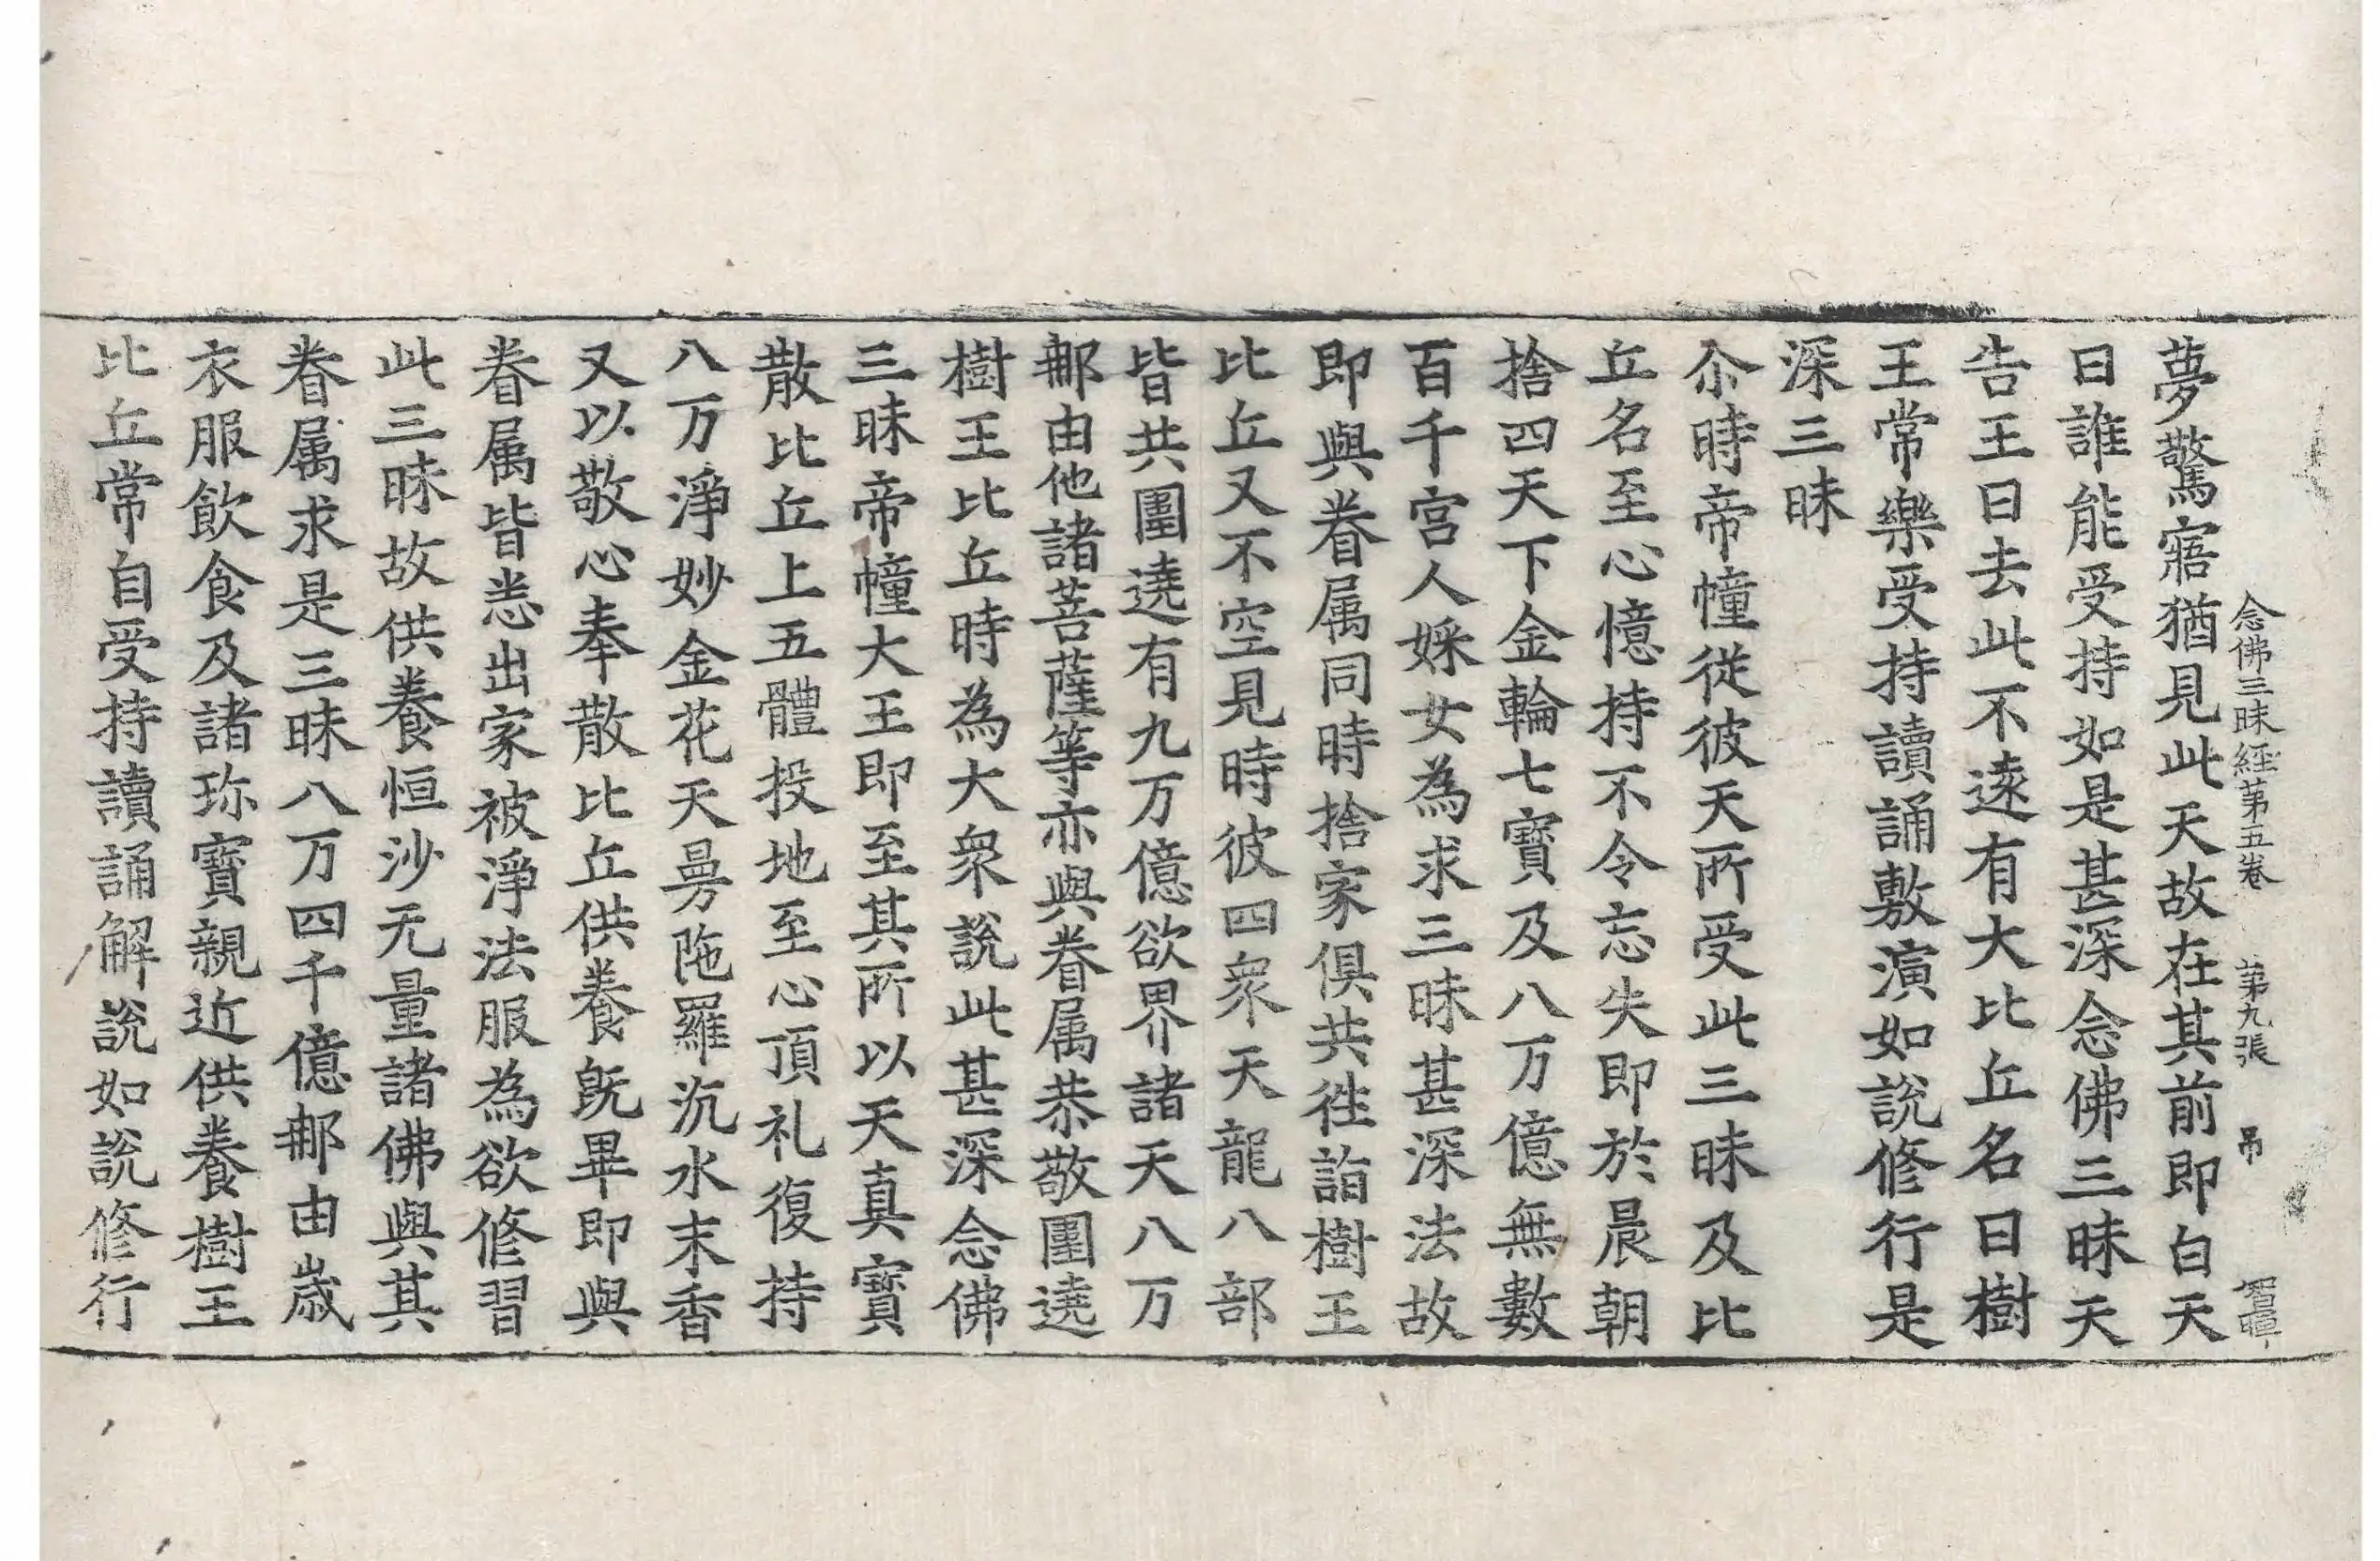 念佛三昧經第五卷 第九張 吊
夢驚寤猶見此天故在其前即白天
曰誰能受持如是甚深念佛三昧天
告王曰去此不遠有大比丘名曰樹
王常樂受持讀誦敷演如說修行是
深三昧
尒時帝幢從彼天所受此三昧及比
丘名至心憶持不令忘失即於晨朝
捨四天下金輪七寶及八万億無數
百千宮人婇女為求三昧甚深法故
即與眷属同時捨家俱共徃詣樹王
比丘又不空見時彼四衆天龍八部
皆共圍遶有九万億欲界諸天八万
那由他諸菩薩等亦與眷属恭敬圍遶
樹王比丘時為大衆說此甚深念佛
三昧帝幢大王即至其所以天真寶
散比丘上五體投地至心頂礼復持
八万淨妙金花天曼陁羅沉水末香
又以敬心奉散比丘供養旣畢即與
眷属皆悉出家被淨法服為欲修習
此三昧故供養恒沙无量諸佛與其
眷属求是三昧八万四千億那由歲
衣服飲食及諸珎寶親近供養樹王
比丘常自受持讀誦解說如說修行